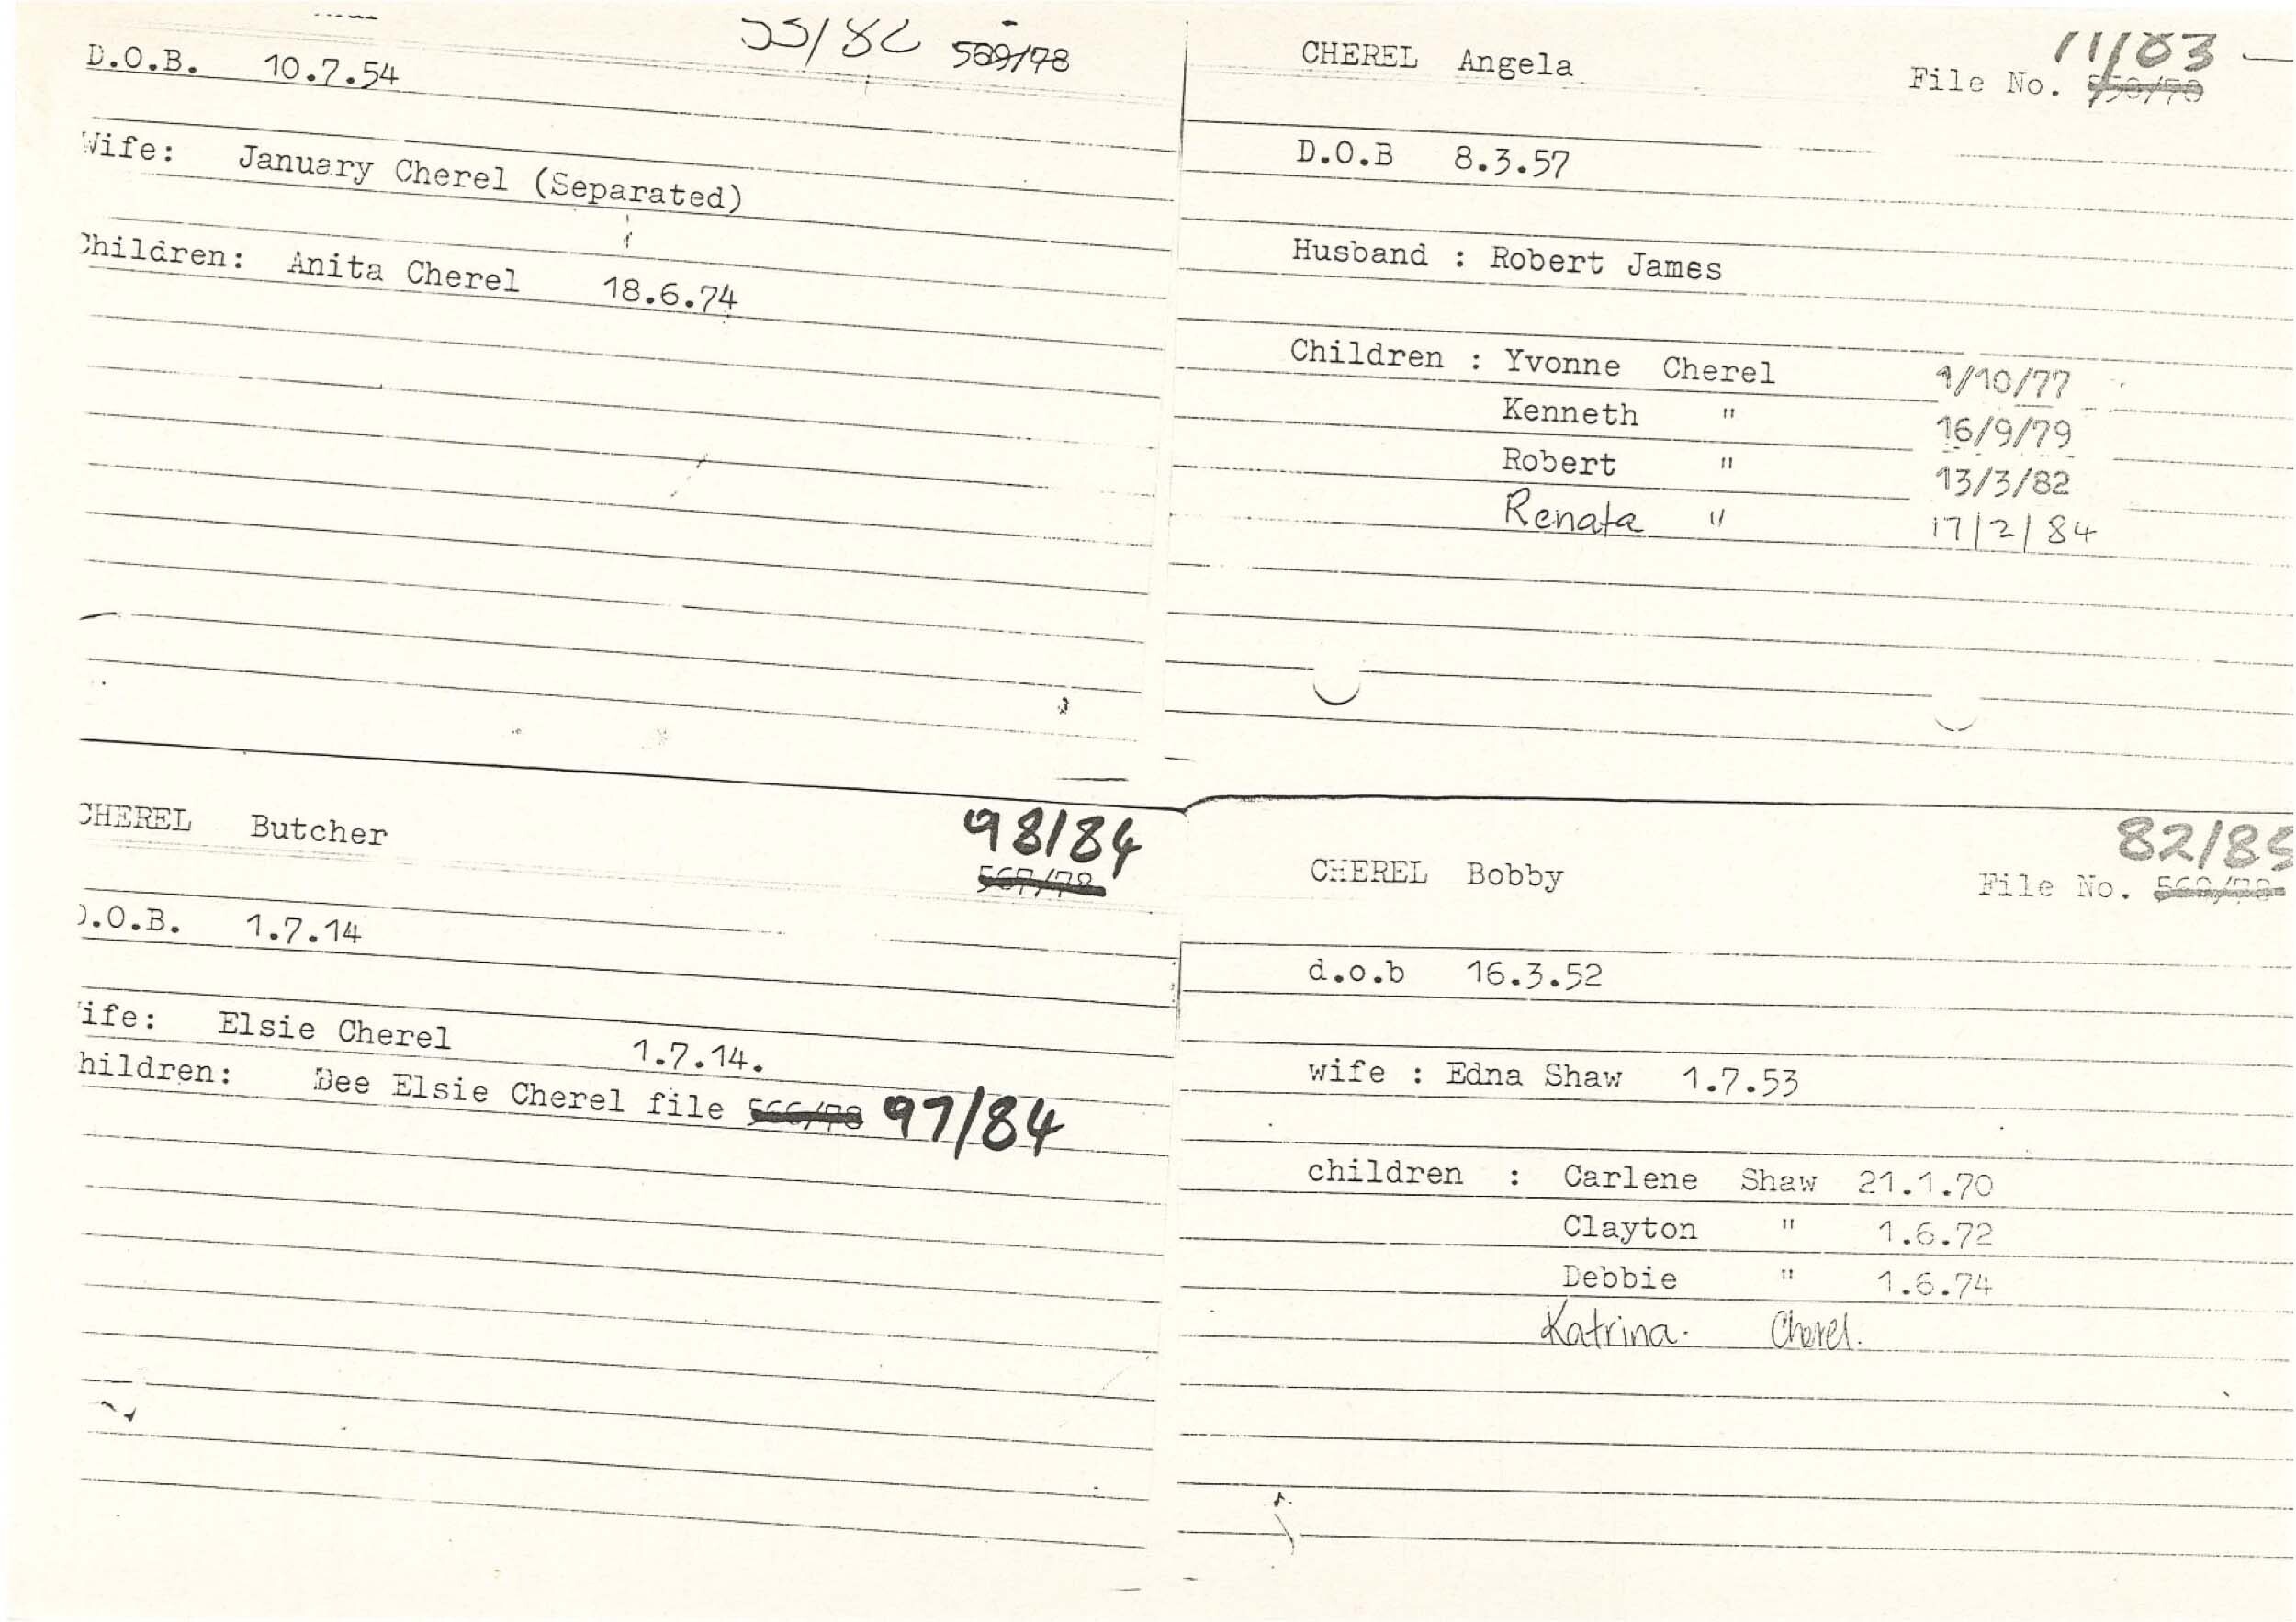 589/78
D.O.B. 10.7.54
Wife: January Cherel (Separated)
Children: Anita Cherel 18.6.74
CHEREL Angela
11/83
File No.
D.O.B 8.3.57
Husband : Robert James
Children : Yvonne Cherel 1/10/77
Kenneth " 16/9/79
Robert " 13/3/82
Renata " 17/2/84
CHEREL Butcher
98/84
567/78
D.O.B. 1.7.14
Wife: Elsie Cherel 1.7.14.
Children: Dee Elsie Cherel file 566/78 97/84
CHEREL Bobby
82/85
File No.
d.o.b 16.3.52
wife : Edna Shaw 1.7.53
children : Carlene Shaw 21.1.70
Clayton " 1.6.72
Debbie " 1.6.74
Katrina. Cherel.